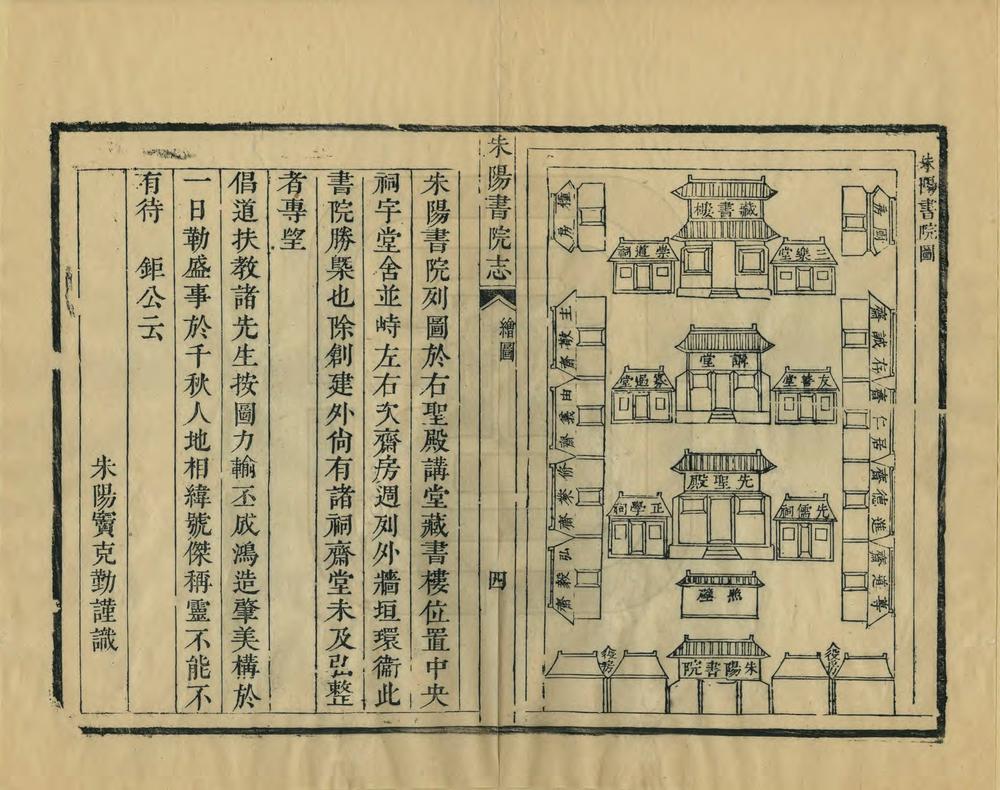 朱陽書院圖
藏書樓
三樂堂
崇道祠
厨房
種房
講堂
友善堂
寡過堂
存誠齋
居仁齋
進德齋
尊道齋
主敬齋
由義齋
修業齋
弘毅齋
先聖殿
先儒祠
正學祠
照壁
朱陽書院
役房
役房
朱陽書院志
繪圖
四
朱陽書院列圖於右聖殿講堂藏書樓位置中央
祠宇堂舍並峙左右次齋房週列外牆垣環衞此
書院勝槩也除創建外尙有諸祠齋堂未及弘整
者專望
倡道扶教諸先生按圖力輸丕成鴻造肇美構於
一日勒盛事於千秋人地相緯號傑稱靈不能不
有待　鉅公云
朱陽竇克勤謹識